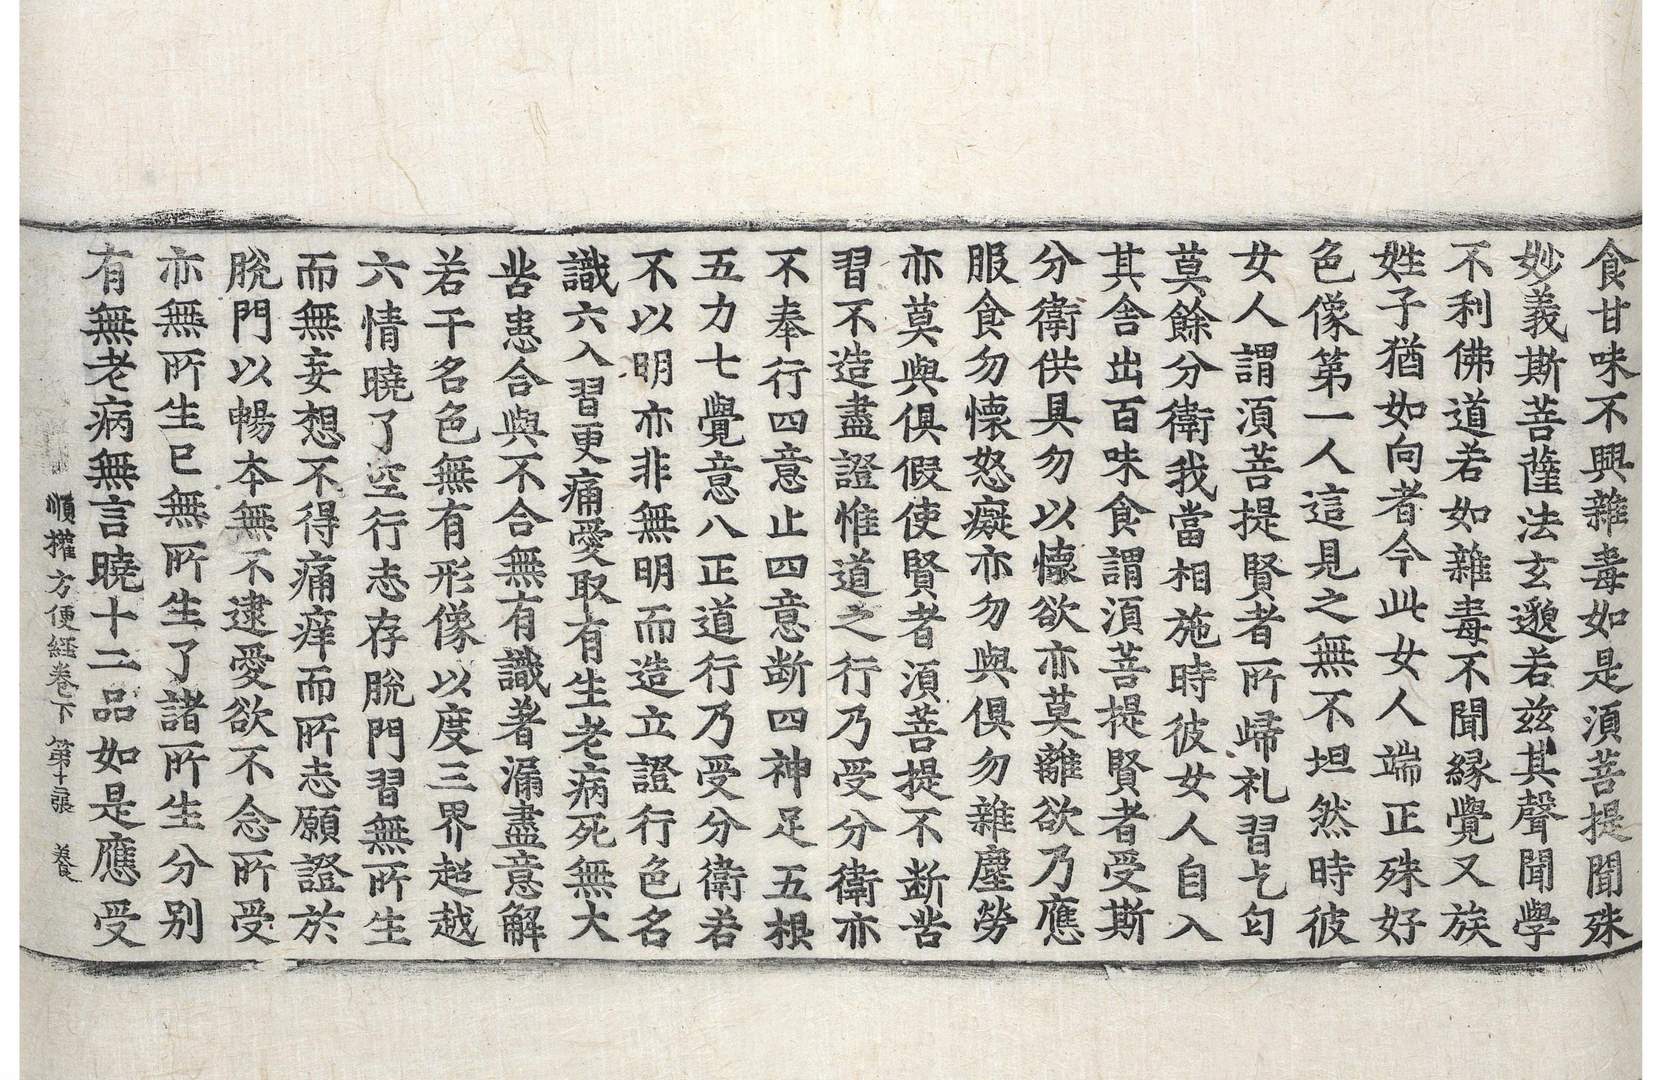 食甘味不興雜毒如是須菩提聞殊
妙義斯菩薩法玄邈若兹其聲聞學
不利佛道若如雜毒不聞緣覺又族
姓子猶如向者今此女人端正殊好
色像第一人這見之無不坦然時彼
女人謂須菩提賢者所歸礼習乞匂
莫餘分衛我當相施時彼女人自入
其舍出百味食謂須菩提賢者受斯
分衛供具勿以懷欲亦莫離欲乃應
服食勿懷怒癡亦勿與俱勿雜塵勞
亦莫與俱假使賢者須菩提不断苦
習不造盡證惟道之行乃受分衛亦
不奉行四意止四意断四神足五根
五力七覺意八正道行乃受分衛若
不以明亦非無明而造立證行色名
識六入習更痛愛取有生老病死無大
苦患合與不合無有識著漏盡意解
若干名色無有形像以度三界超越
六情曉了空行志存脫門習無所生
而無妄想不得痛痒而所志願證於
脫門以暢本無不逮愛欲不念所受
亦無所生已無所生了諸所生分别
有無老病無言曉十二品如是應受
順權方便経卷下 第十二張 養